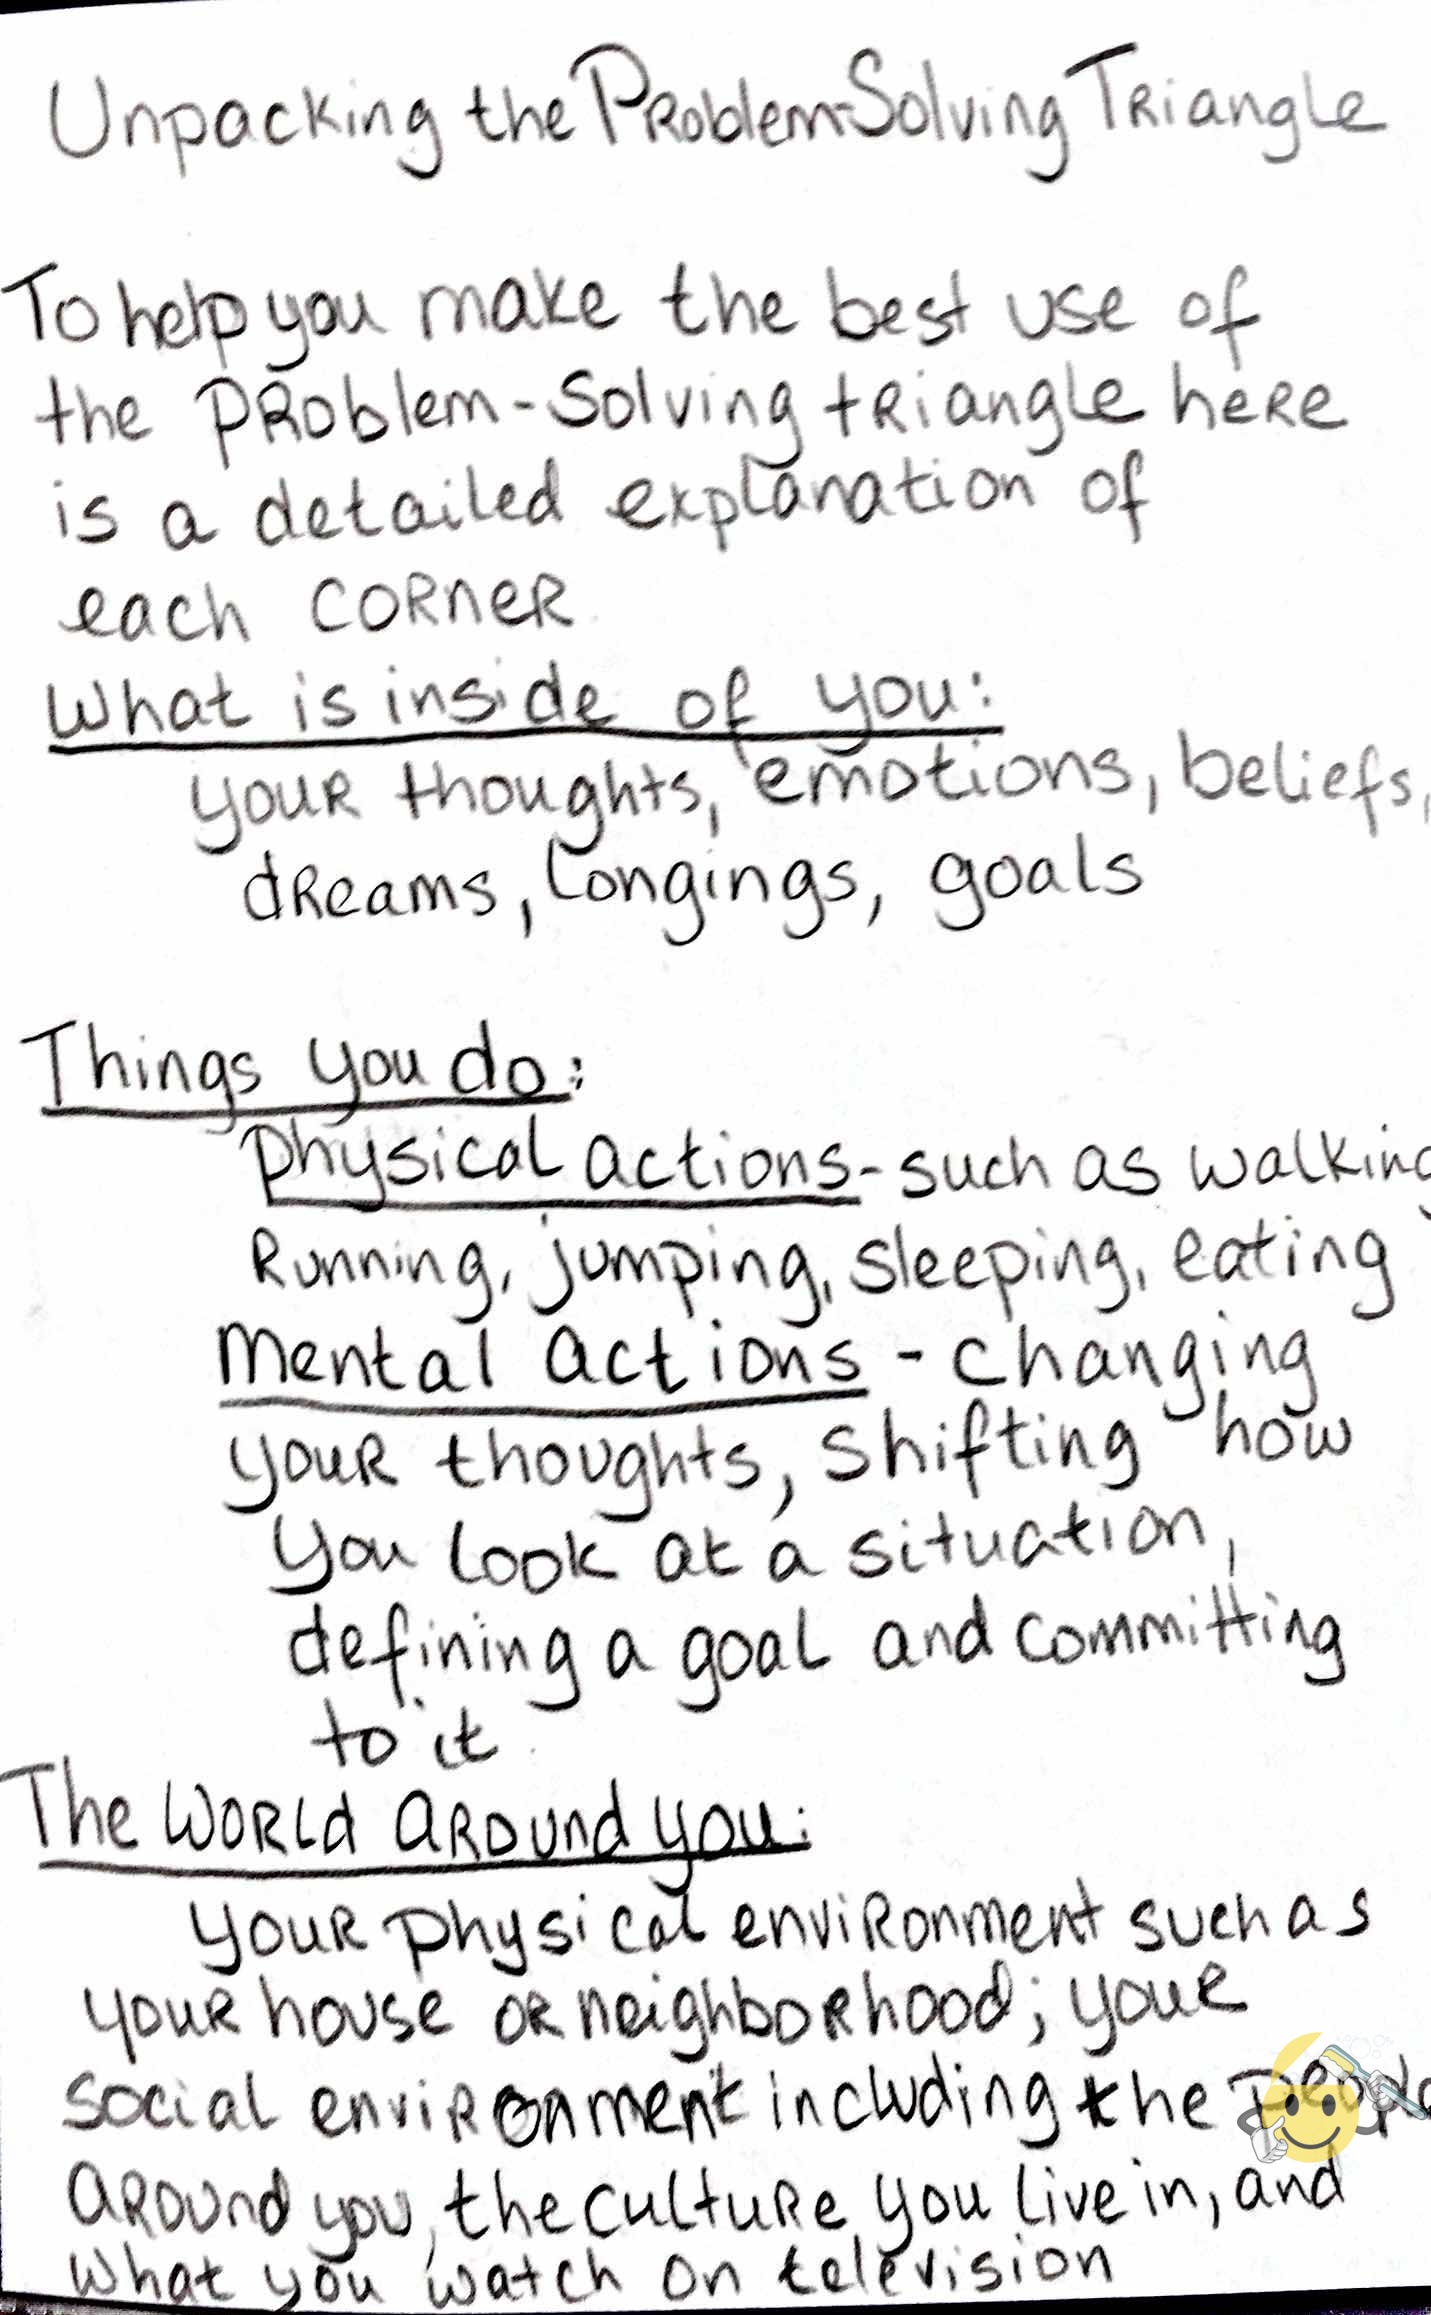 Unpacking the Problem-Solving Triangle
To help you make the best use of
the problem-solving triangle here
is a detailed explanation of
each corner
What is inside of you:
your thoughts, emotions, beliefs,
dreams, longings, goals
Things you do:
physical actions - such as walking
Running, jumping, sleeping, eating
mental actions - changing
your thoughts, shifting how
you look at a situation,
defining a goal and committing
to it
The World around you:
your physical environment such as
your house or neighborhood; your
social environment including the people
around you, the culture you live in, and
what you watch on television